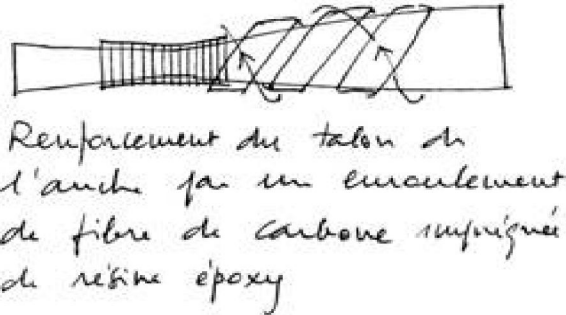 Renforcement du talon de
l'anche par un enroulement
de fibre de carbone imprégnée
de résine époxy